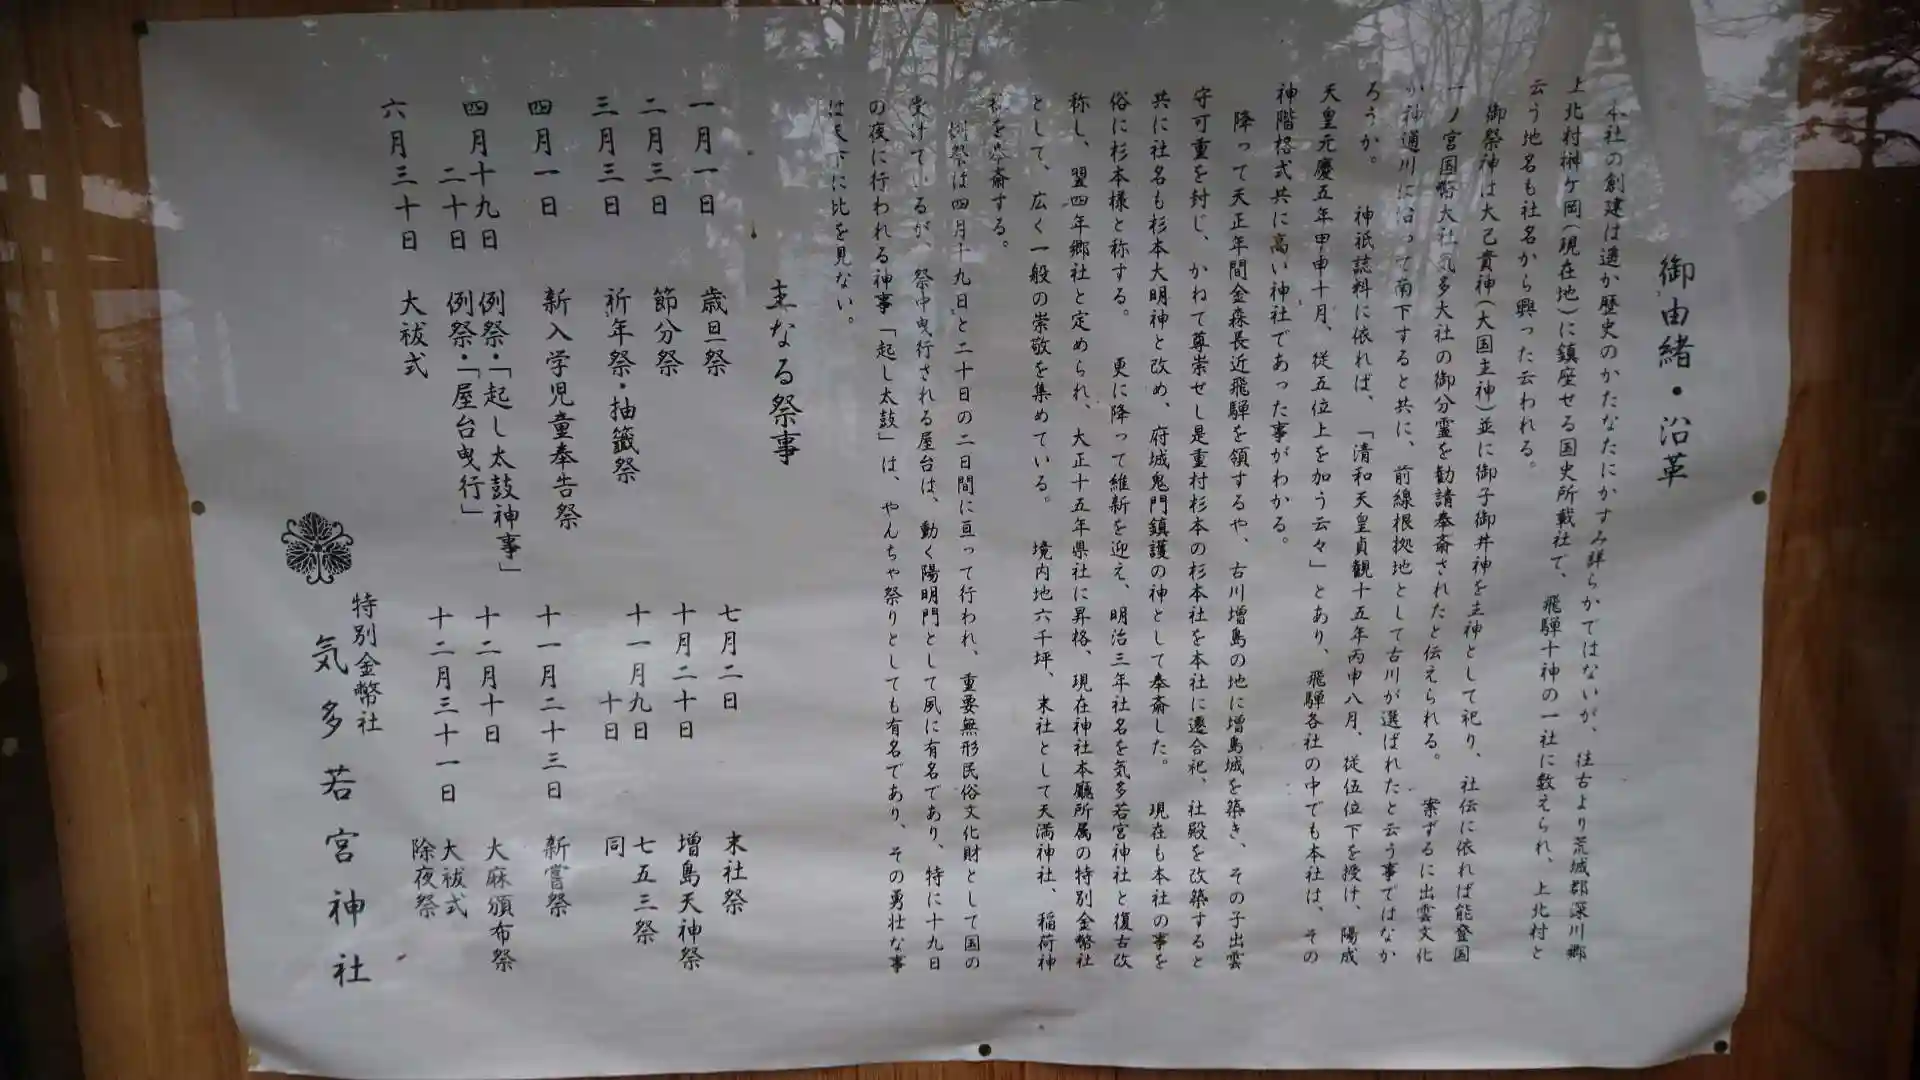 御由緒・沿革
本社の創建は遥か歴史のかたなたにかすみ詳らかではないが、往古より荒城郡深川郷
上北村榊ケ岡(現在地)に鎮座せる国史所載社で、飛騨十神の一社に数えられ、上北村と
云う地名も社名から興った云われる。
御祭神は大己貴神(大国主神)並に御子御井神を主神として祀り、社伝に依れば能登国
一ノ宮国幣大社気多大社の御分霊を勧請奉斎されたと伝えられる。 案ずるに出雲文化
が神通川に沿って南下すると共に、前線根拠地として古川が選ばれたと云う事ではなか
ろうか。 神祇誌料に依れば、「清和天皇貞観十五年丙申八月、従伍位下を授け、陽成
天皇元慶五年甲申十月、従五位上を加う云々」とあり、飛騨各社の中でも本社は、その
神階格式共に高い神社であった事がわかる。
降って天正年間金森長近飛騨を領するや、古川増島の地に増島城を築き、その子出雲
守可重を封じ、かねて尊崇せし是重村杉本の杉本社を本社に遷合祀、社殿を改築すると
共に社名も杉本大明神と改め、府城鬼門鎮護の神として奉斎した。 現在も本社の事を
俗に杉本様と称する。 更に降って維新を迎え、明治三年社名を気多若宮神社と復古改
称し、翌四年郷社と定められ、大正十五年県社に昇格、現在神社本廳所属の特別金幣社
として、広く一般の崇敬を集めている。 境内地六千坪、末社として天満神社、稲荷神
社を奉斎する。
例祭は四月十九日と二十日の二日間に亘って行われ、重要無形民俗文化財として国の
受けているが、祭中曳行される屋台は、動く陽明門として夙に有名であり、特に十九日
の夜に行われる神事「起し太鼓」は、やんちゃ祭りとしても有名であり、その勇壮な事
は天下に比を見ない。
主なる祭事
一月一日 歳旦祭
二月三日 節分祭
三月三日 祈年祭・抽籤祭
四月一日 新入学児童奉告祭
四月十九日 例祭・「起し太鼓神事」
二十日 例祭・「屋台曳行」
六月三十日 大祓式
七月二日 末社祭
十月二十日 増島天神祭
十一月九日 七五三祭
十日 同
十一月二十三日 新嘗祭
十二月十日 大麻頒布祭
十二月三十一日 大祓式
除夜祭
特別金幣社
気多若宮神社